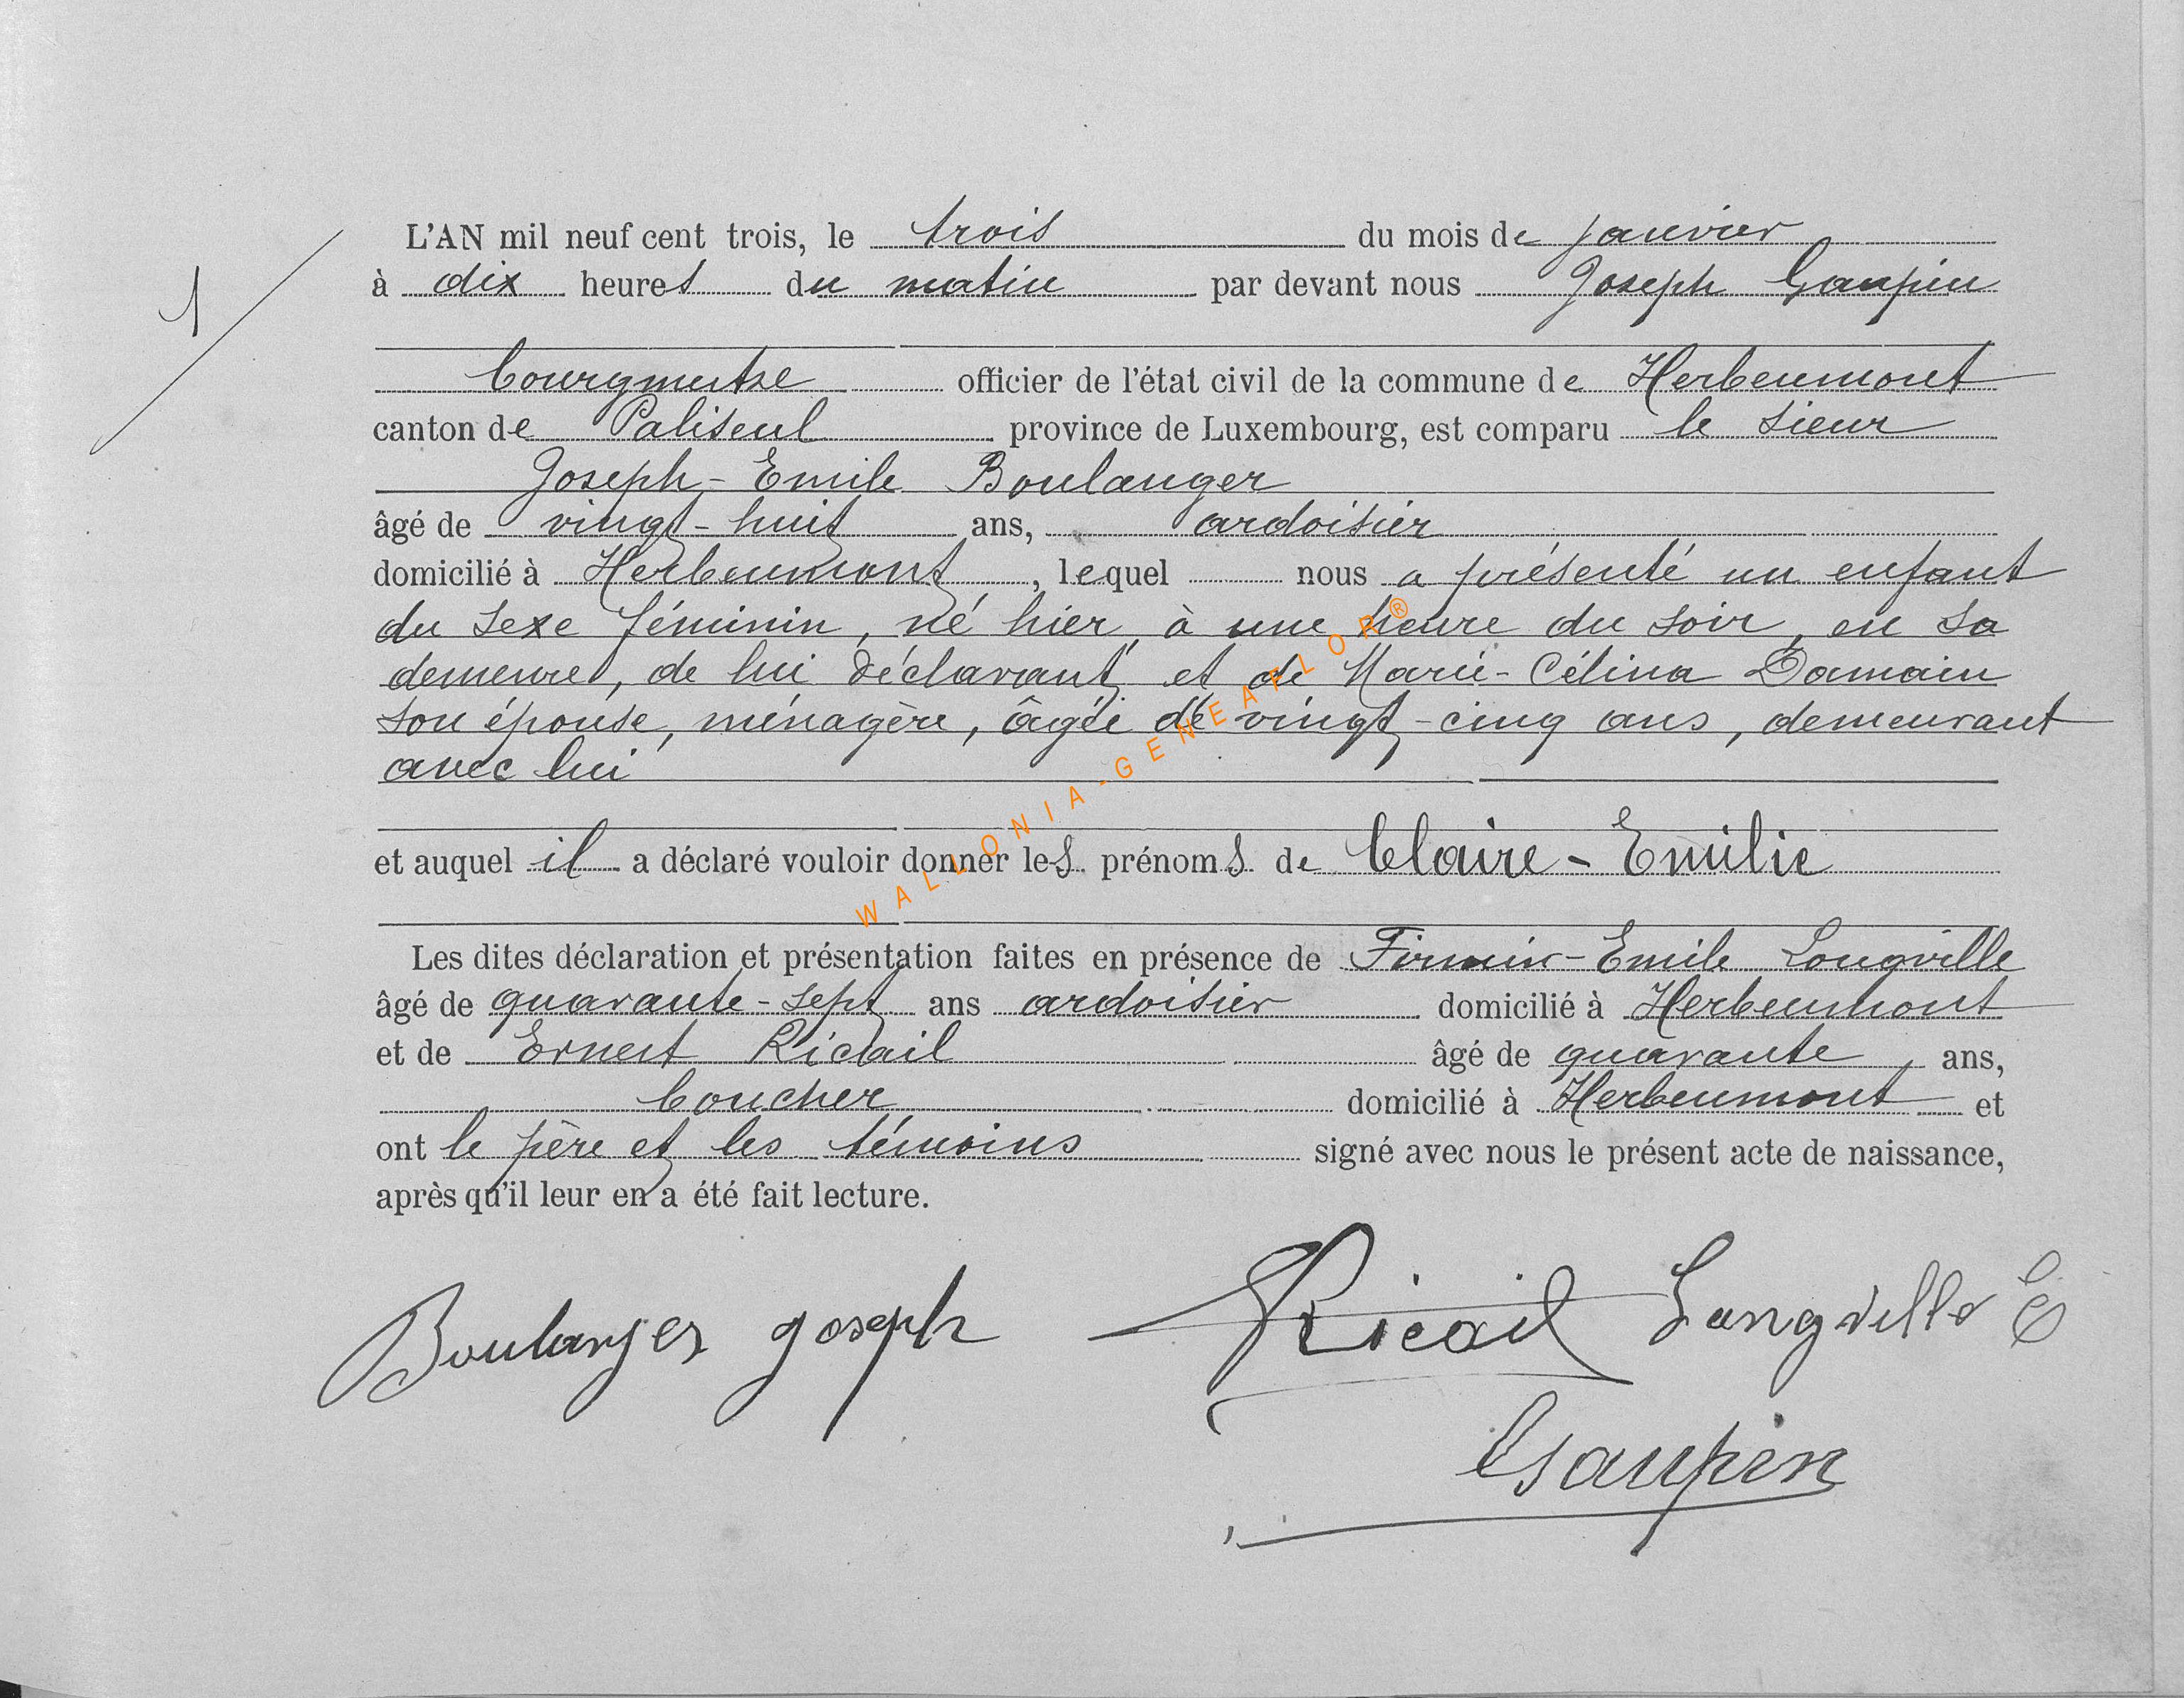 1
L'AN mil neuf cent trois, le trois du mois de janvier
à dix heures du matin par devant nous Joseph Gaupin
bourgmestre officier de l'état civil de la commune de Herbeumont
canton de Paliseul province de Luxembourg, est comparu le sieur
Joseph-Emile Boulanger
âgé de vingt-huit ans, ardoisier
domicilié à Herbeumont, lequel nous a présenté un enfant
du sexe féminin, né hier, à une heure du soir, en sa
demeure, de lui déclarant et de Marie-Célina Damain
son épouse, ménagère, âgée de vingt-cinq ans, demeurant
avec lui
et auquel il a déclaré vouloir donner les prénoms de Claire-Emilie
Les dites déclaration et présentation faites en présence de Firmin-Emile Longville
âgé de quarante-sept ans ardoisier domicilié à Herbeumont
et de Ernest Ricail âgé de quarante ans,
boucher domicilié à Herbeumont et
ont le père et les témoins signé avec nous le présent acte de naissance,
après qu'il leur en a été fait lecture.
Boulanger joseph Ricail Longville E
Gaupin
WALLONIA-GENEAFLOR®